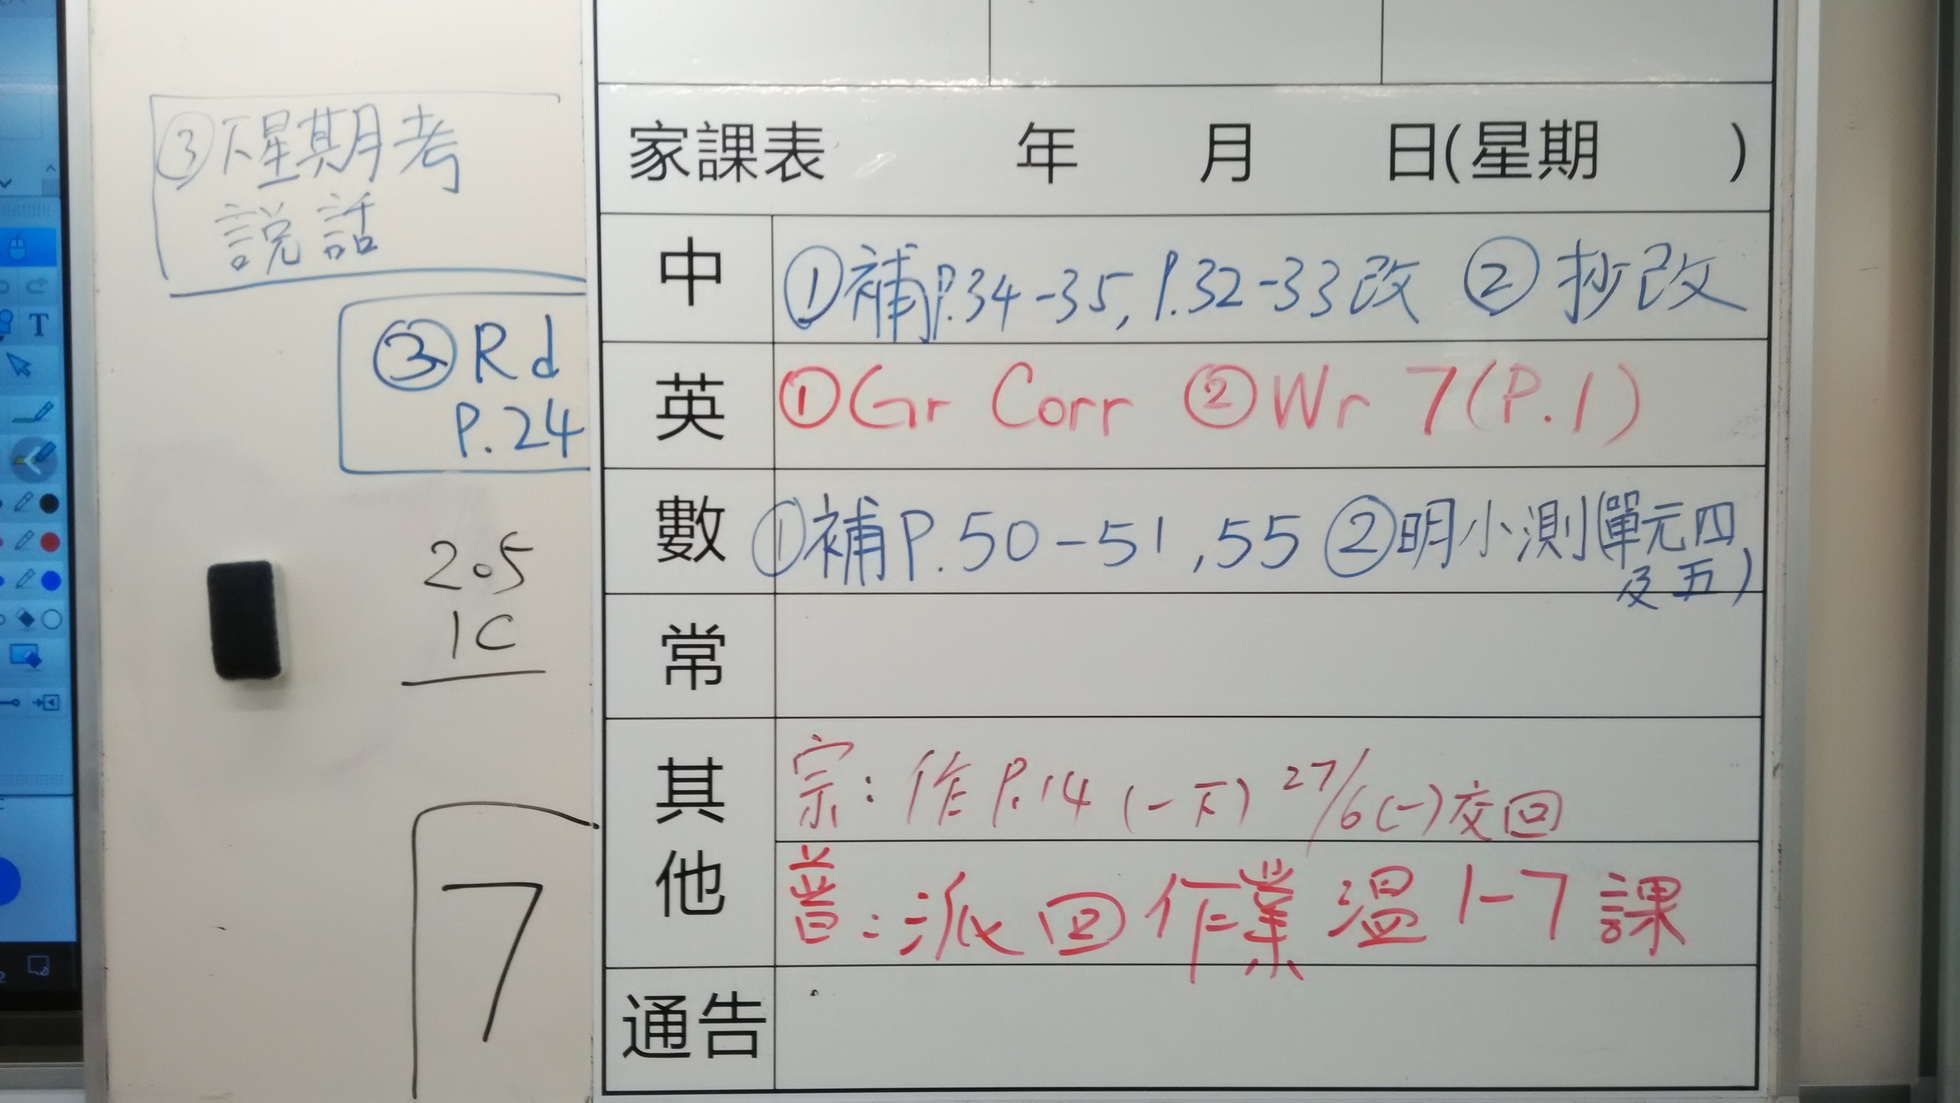 ③下星期考
說話
③Rd
P.24
2.5
1C
7
家課表 年 月 日(星期 )
中 ①補P.34-35, P.32-33改 ②抄改
英 ①Gr Corr ②Wr 7(P.1)
數 ①補P.50-51,55 ②明小測(單元四
及五)
常
其他
宗:作P.14(一下) 27/6(一)交回
普:派回作業 溫1-7課
通告
T